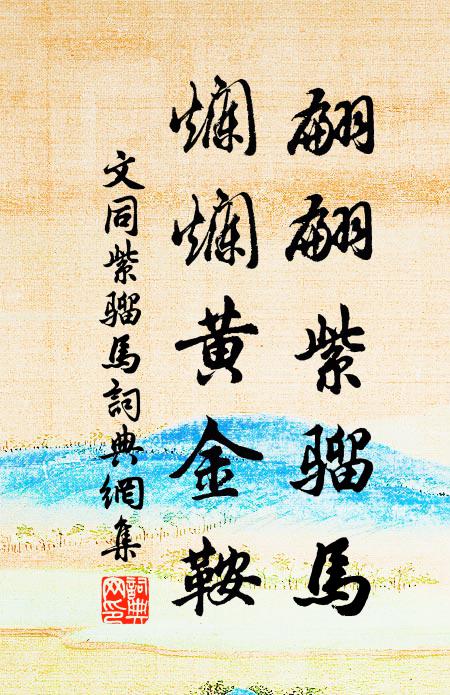 翩翩紫騮馬
爛爛黃金鞍
文同紫騮馬詞典網集